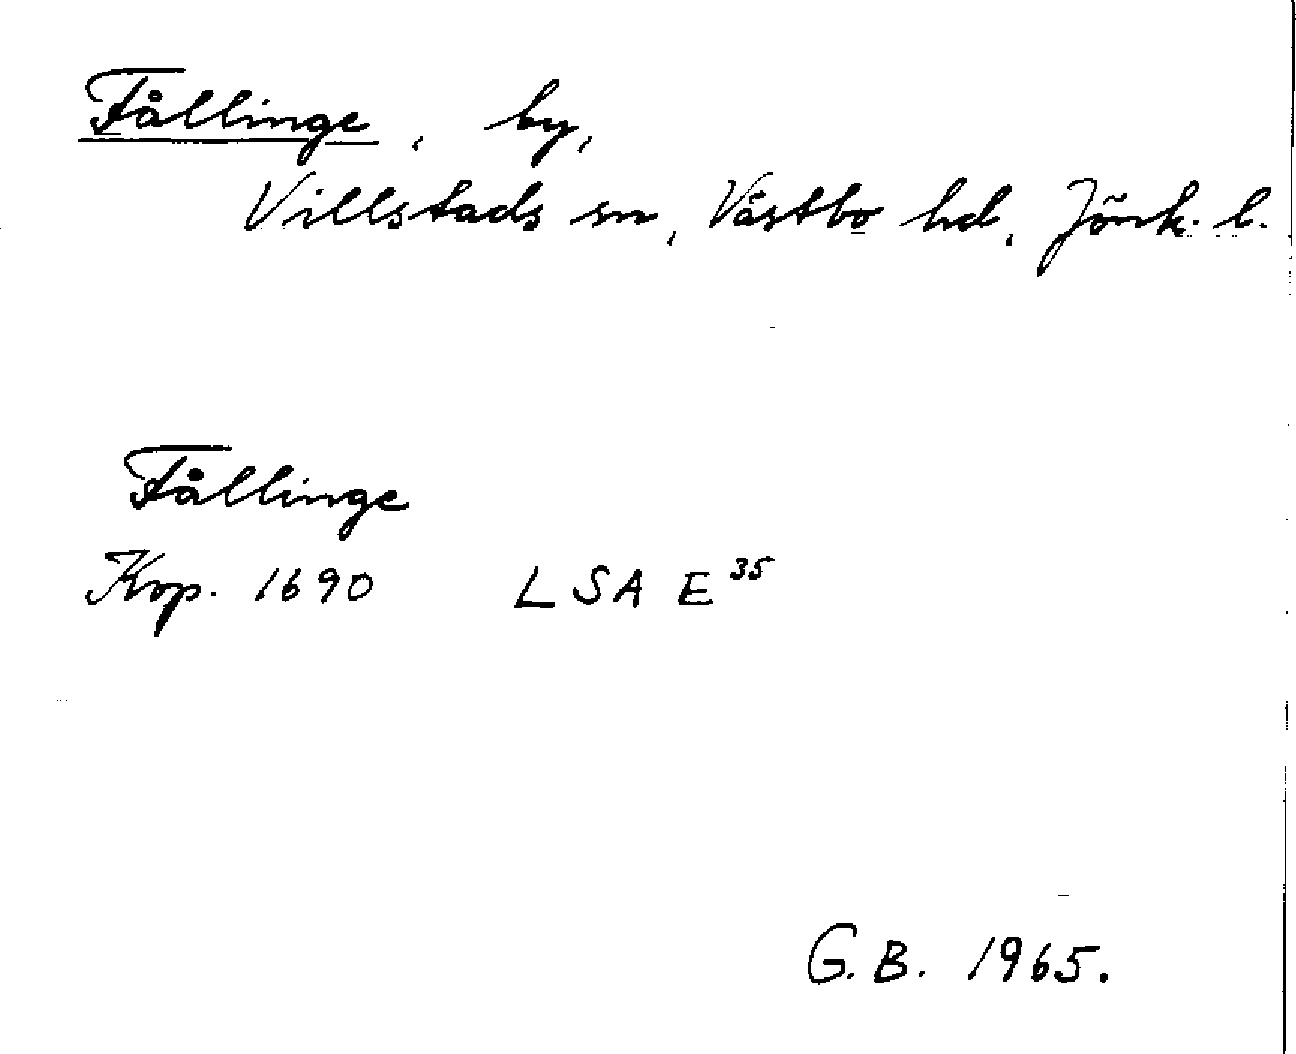 Fållinge, by,
Villstads sn, Västbo hd, Jönk. l.
Fållinge
Kop. 1690 LSA E³⁵
G.B. 1965.